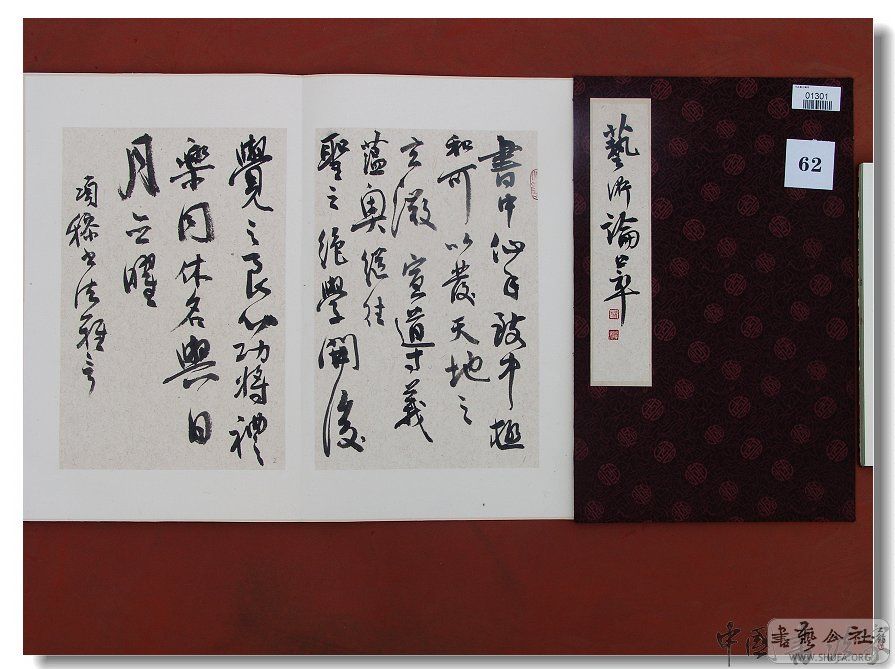 01301
62
藝術論
書中仙手致中極
和可以發天地之
玄微宣道義
蘊奧繼往
聖之絕學開後
覺之良心功將禮
樂同休名與日
月並曜
項穆書法雅言
中国書藝公社
WWW.SHUFA.ORG